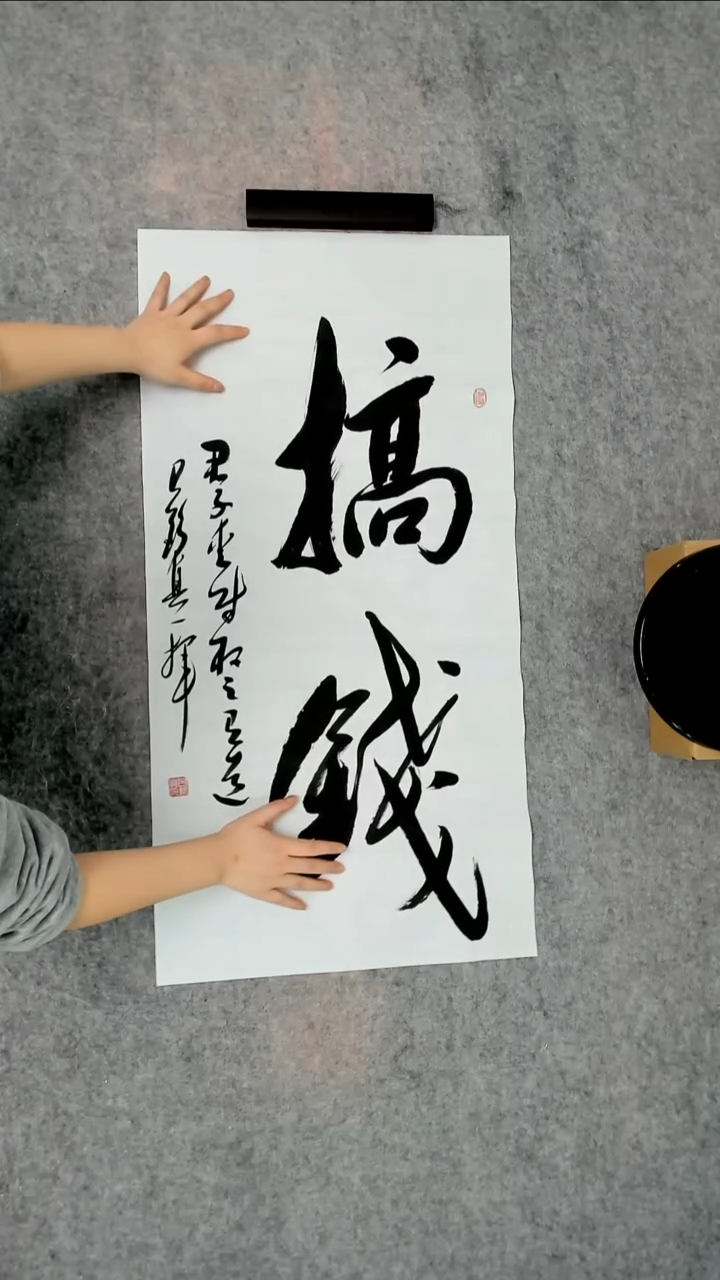 搞錢
君子愛財取之有道
真一揮